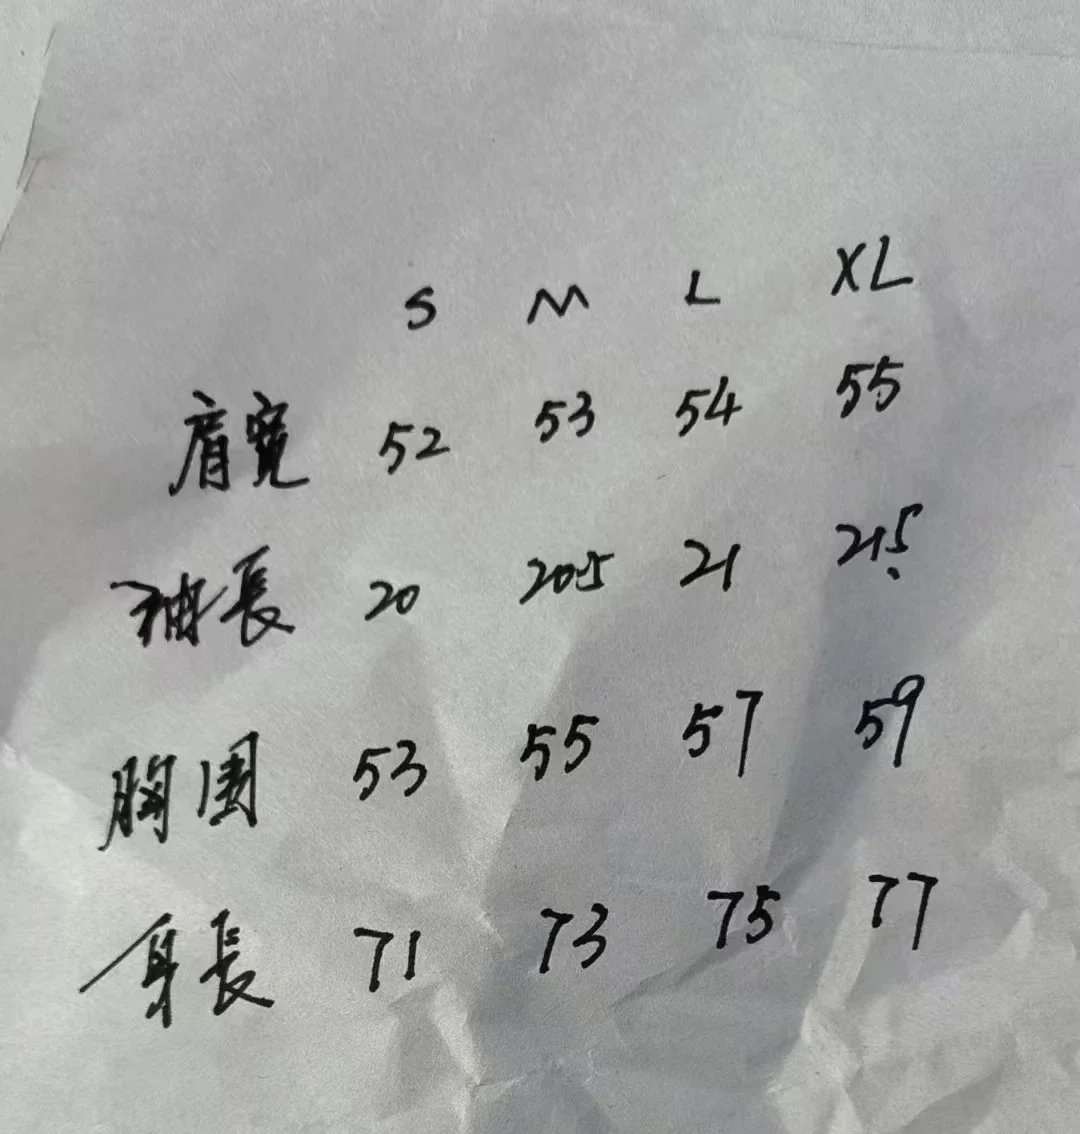 S M L XL
肩寬 52 53 54 55
袖長 20 20.5 21 21.5
胸圍 53 55 57 59
身長 71 73 75 77